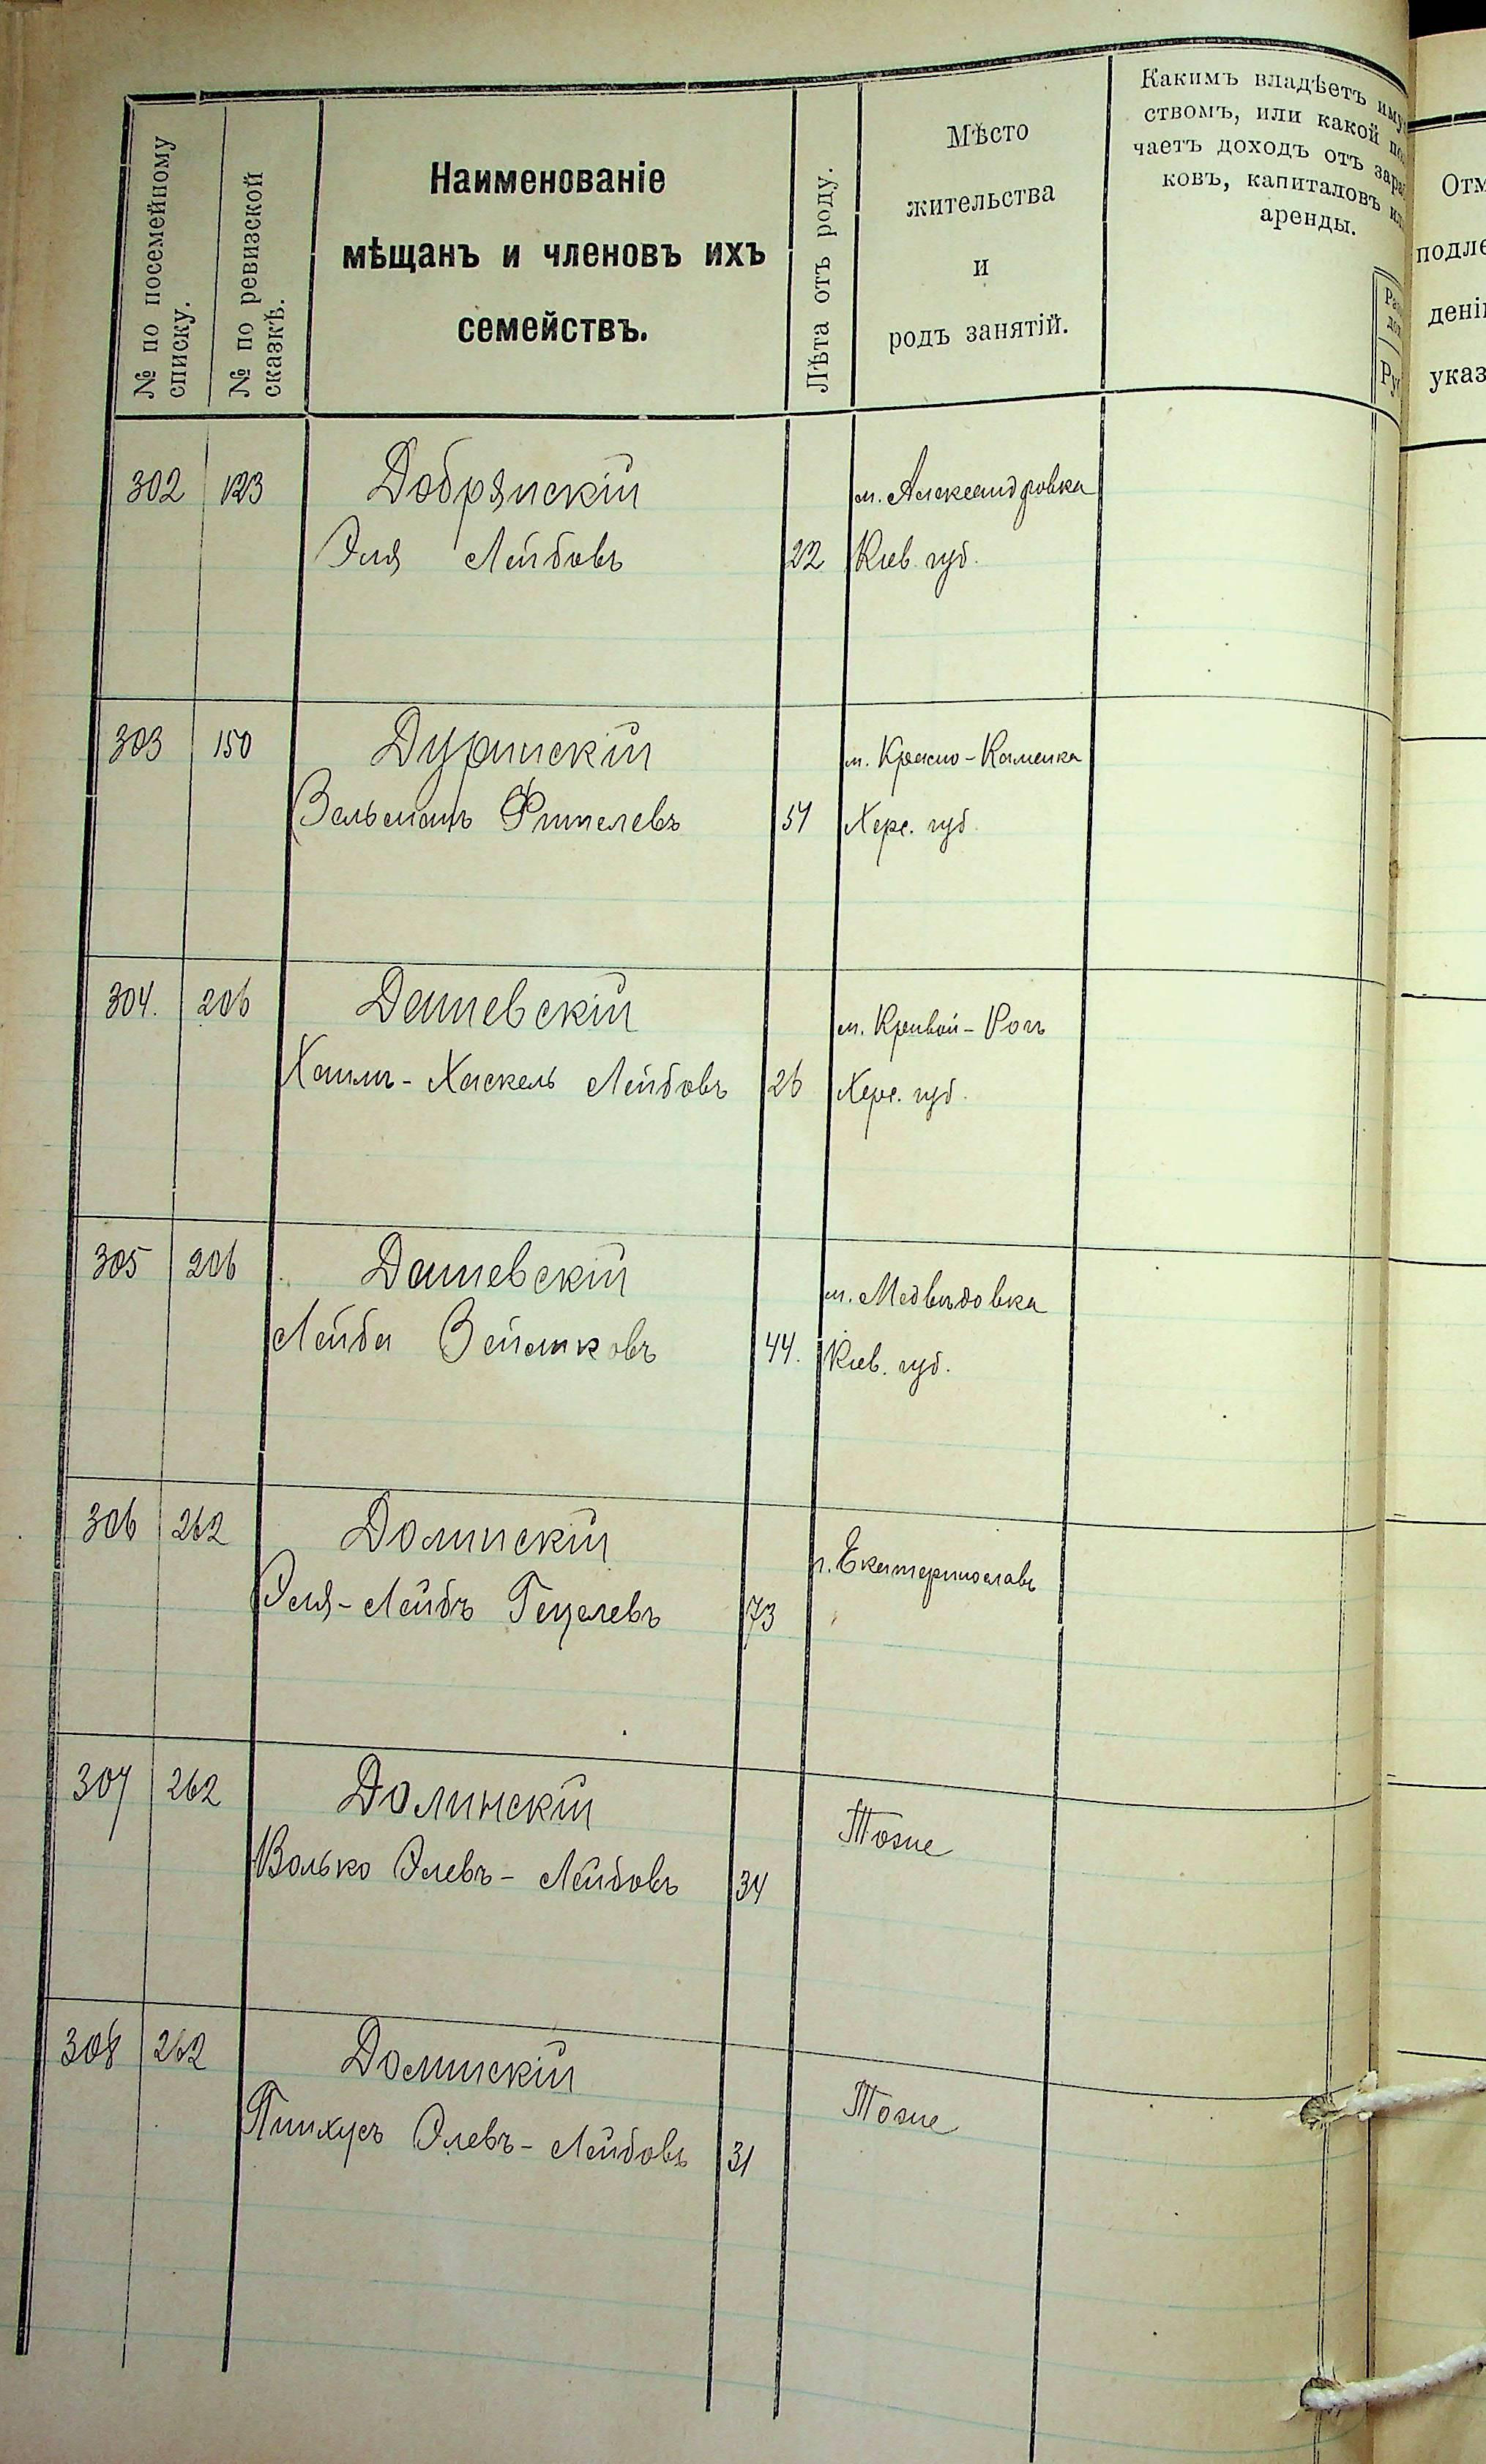 № по посемейному
списку.
№ по ревизской
сказкѣ.
Наименованіе
мѣщанъ и членовъ ихъ
семействъ.
Лѣта отъ роду.
Мѣсто
жительства
и
родъ занятій.
Какимъ владѣетъ иму
ствомъ, или какой по
чаетъ доходъ отъ зара
ковъ, капиталовъ ил
аренды.
Отм
подле
дені
указ
302 123 Добрянскій м. Александровка
Эля Лейбовъ 22 Кіев. губ.
303 150 м. Красно-Каменка
Зельманъ 54 Херс. губ.
304. 206 Дашевскій м. Кривой-Рогъ
Хаимъ-Хаскель Лейбовъ 26 Херс. губ.
305 206 Дашевскій м. Медвѣдовка
Лейба 44. Кіев. губ.
306 262 Долинскій г. Екатеринославъ
Эля-Лейбъ Гецелевъ 73
307 262 Долинскій Тоже
Волько Элевъ-Лейбовъ 34
308 262 Долинскій Тоже
Пинхусъ Элевъ-Лейбовъ 31